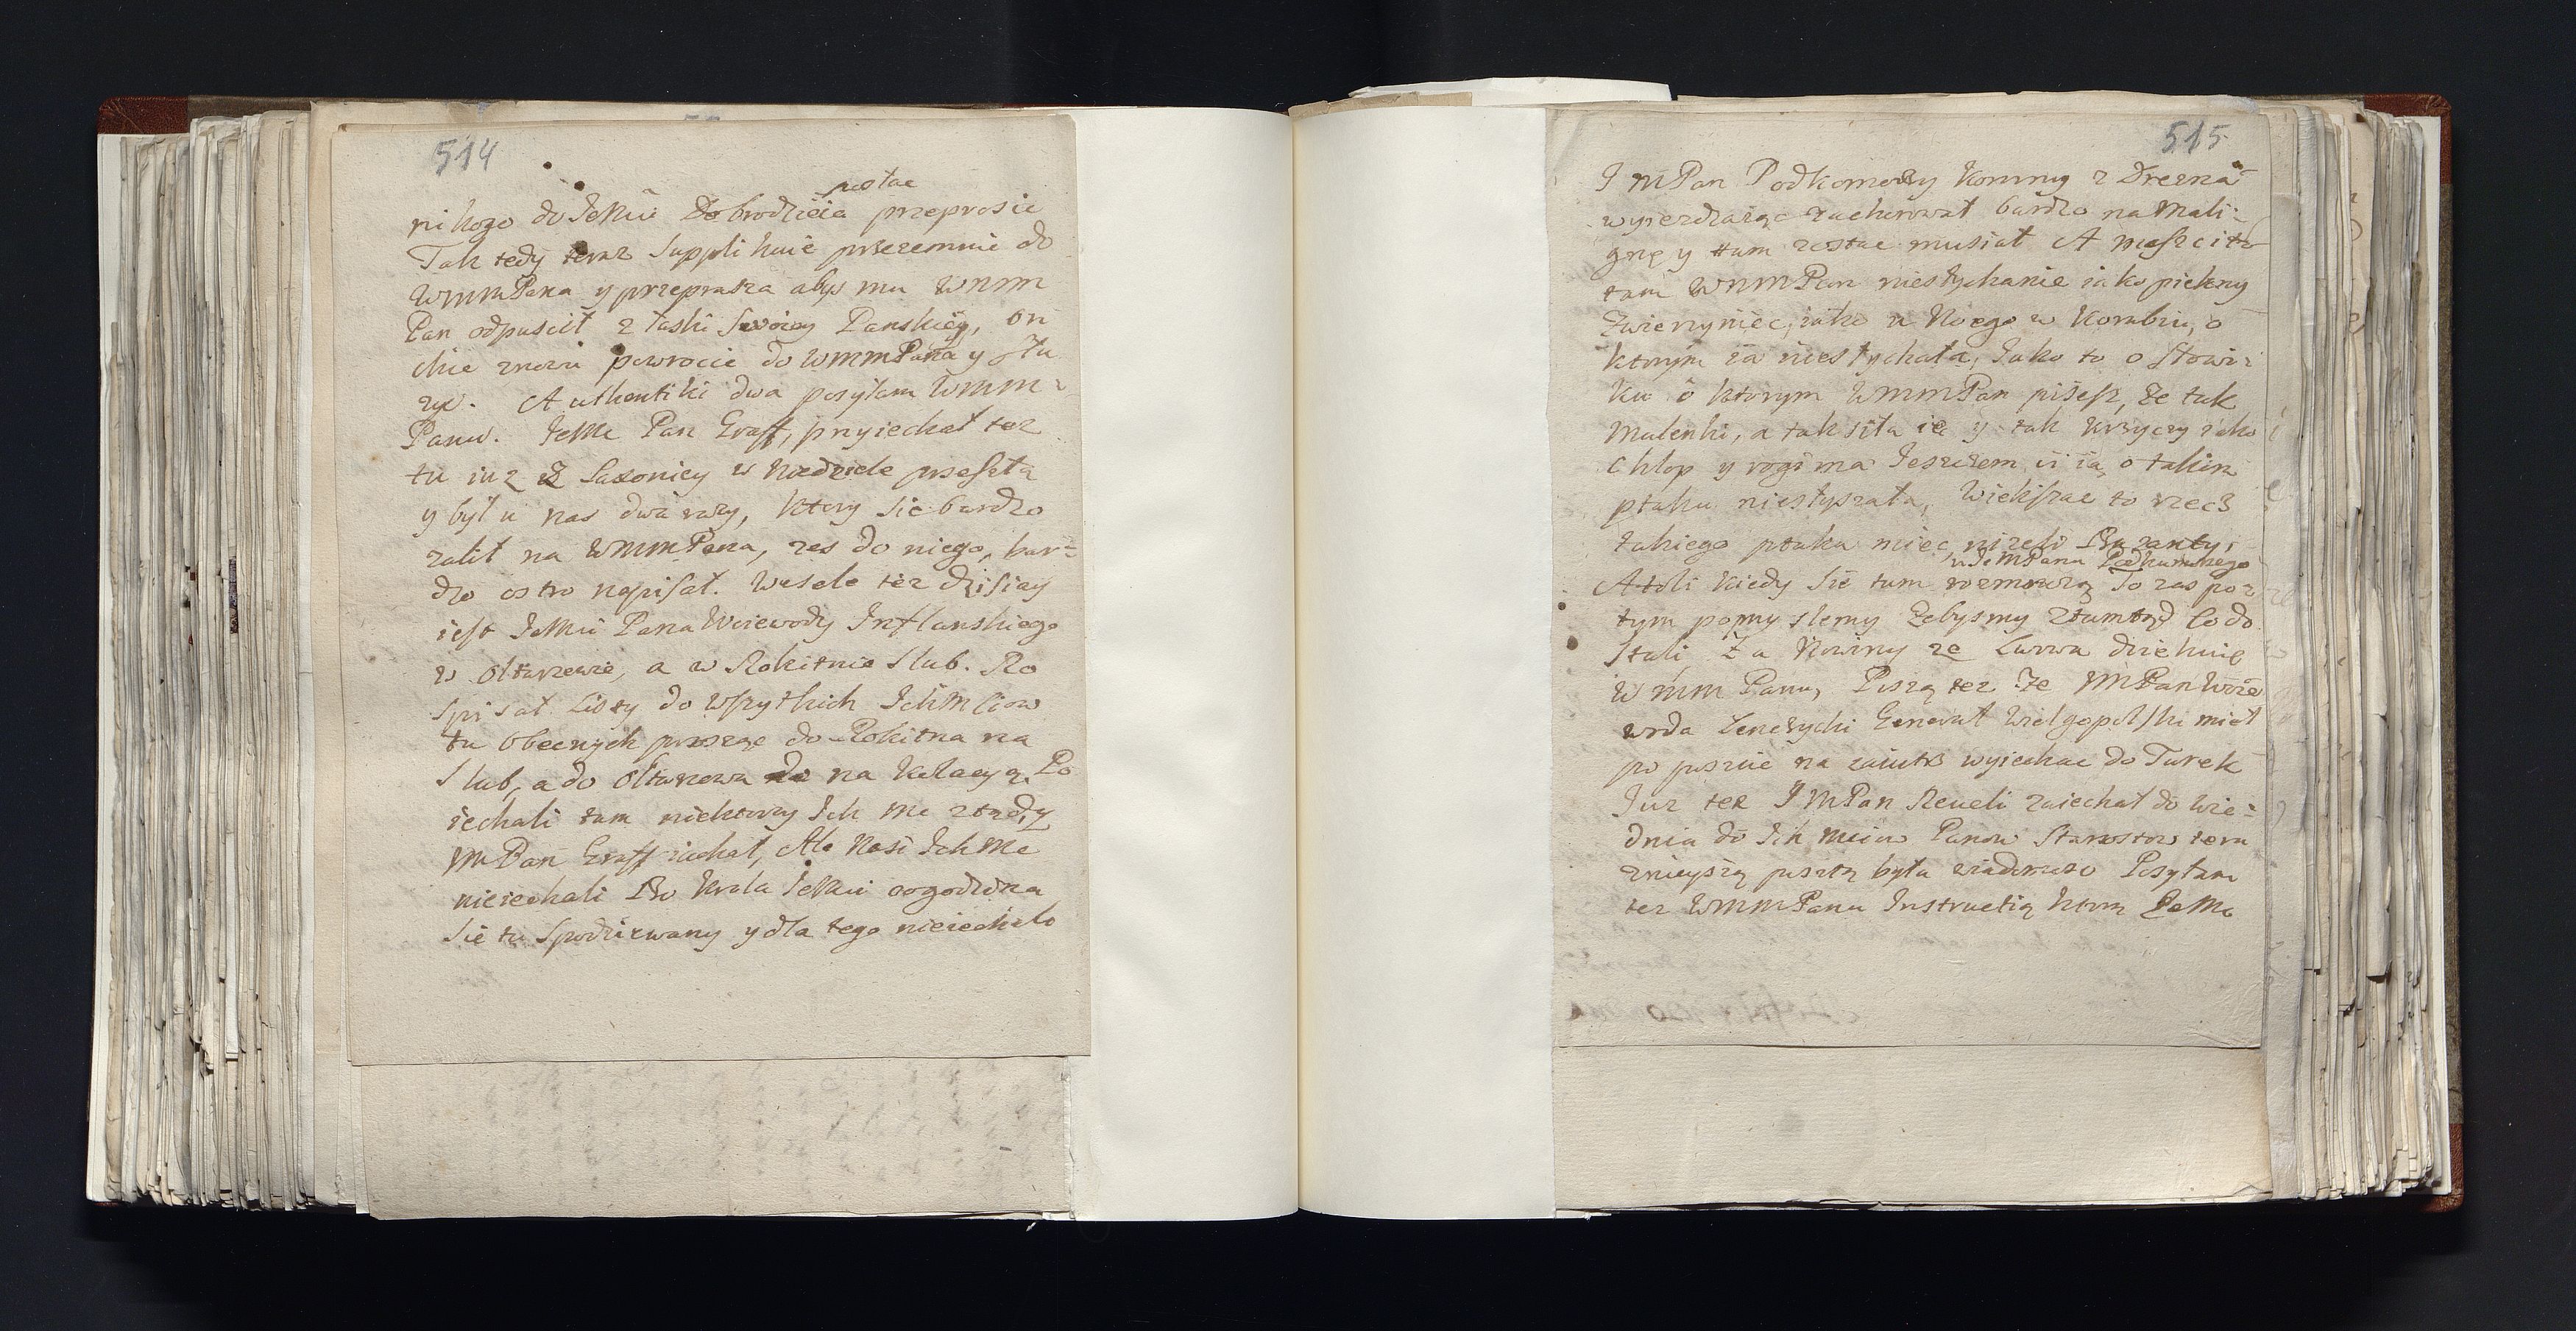 514
nikogo do JeMci Dobrodzieia posłac przeprosic
Tak tedy teraz supplikuie przezemnie do
WMMPana y przeprasza abys mu WMM
Pan odpuscił z łaski swoiey Panskiey, on
chce znowu powrocic do WMMPana y słu
zyc. Authentiki dwa posyłam WMM-
Panu. JeMc Pan Graff, przyiechał tez
tu iuz z Saxoniey w Niedziele przeszłą
y był u nas dwa razy, ktory sie bardzo
zalił na WMMPana, zes do niego, bar-
dzo ostro napisał. Wesele tez dzisiay
iest JeMci Pana Woiewody Inflanskiego
w Ołtarzewie, a w Rokitnie slub. Ro
spisał Listy do wszytkich IchMciow
tu obecnych prosząc do Rokitna na
slub, a do Ołtarzewa na Kolacyą. Po
iechali tam niektorzy Ich Mc ztąd, y
JMPan Graff iachał, Ale Nasi Ich Mc
nieiechali Bo Krola JeMci cogodzina
sie tu spodziewamy y dla tego nieiechało
515
JMPan Podkomorzy Koronny z Drezna
wyiezdzaiąc zachorował bardzo na Mali-
gnę y tam zostac musiał A
tam WMMPan niesłychanie iako piekny
Zwierzyniec, iako u Noego w Korabiu, o
ktorym ia niesłychała, Jako to o słowi-
ku o ktorym WMMPan piszesz, Ze tak
Malenki, a tak siła ie y tak krzyczy iako
Chłop y rogi ma Jeszczem ci ia o takim
ptaku niesłyszała, Wieksza to rzecz
takiego ptaka miec nizeli Bazanty,
u JeMPana Podkomorzego
Atoli kiedy sie tam rozmnozą To zas po-
tym pomyslemy Zebysmy ztamtąd co do
stali Za Nowiny ze Lwowa dziekuię
WMM Panu, Piszą tez Ze JMPan Woie
woda Lenczycki Generał Wielgopolski miał
po poscie na zaiutrz wyiechac do Turek
Juz tez JMPan Reueli zaiechał do Wie-
dnia do Ich Mciow Panow Starostow tera
znieyszą pocztą była wiadomosc Posyłam
tez WMMPanu Instructią ktorą JeMc